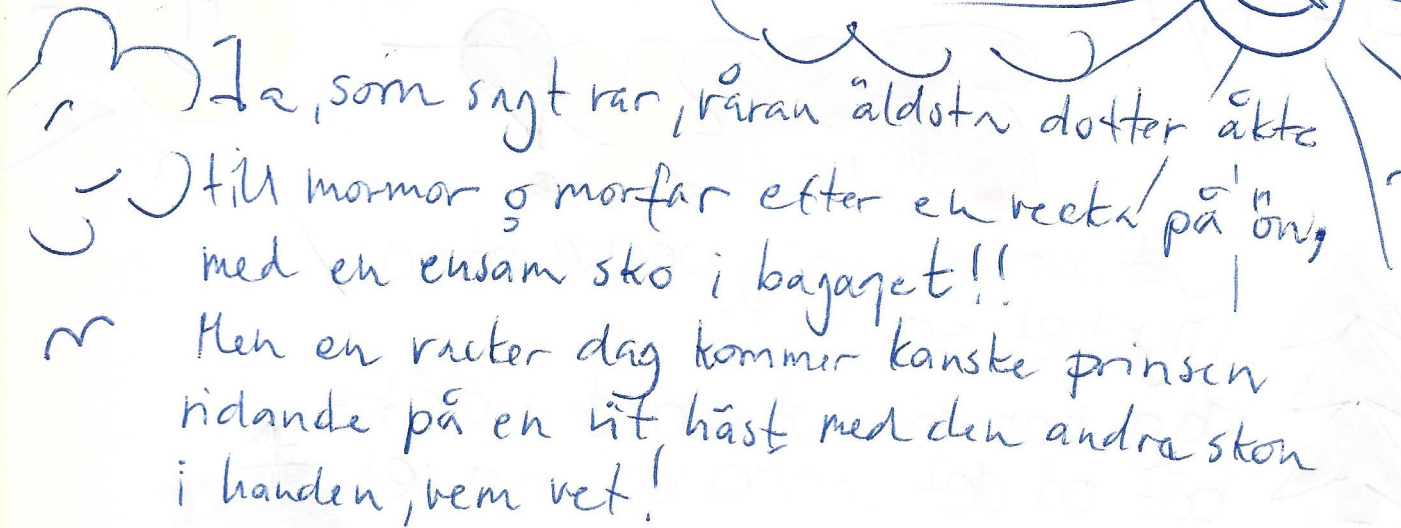 Ja, som sagt var, våran äldsta dotter åkte
till mormor o morfar efter en vecka på ön,
med en ensam sko i bagaget!!
Men en vacker dag kommer kanske prinsen
ridande på en vit häst med den andra skon
i handen, vem vet!